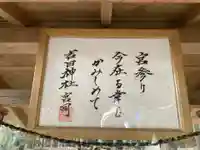 宮参り
今在る幸を
かみしめて
吉田神社宮司